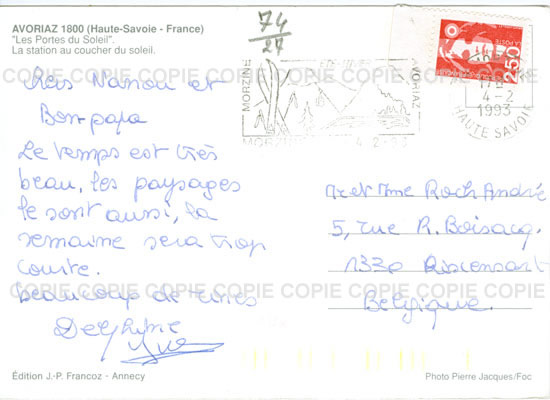 AVORIAZ 1800 (Haute-Savoie - France)
"Les Portes du Soleil".
La station au coucher du soleil.
74
27
MORZINE
ETE - HIVER
AVORIAZ
MORZINE
4 2 93
2,50
17H
4-2
1993
HAUTE SAVOIE
COPIE COPIE COPIE COPIE COPIE COPIE COPIE COPIE
Chers Nanou et
Bonpapa
Le temps est très
beau, les paysages
le sont aussi, la
semaine sera trop
courte.
beaucoup de
Delphine
Mr et Mme Roch André
5, rue R. Boisacq.
1330 Rixensart
Belgique.
COPIE COPIE COPIE COPIE COPIE COPIE COPIE COPIE
COPIE COPIE COPIE COPIE
Édition J.-P. Francoz - Annecy
Photo Pierre Jacques/Foc